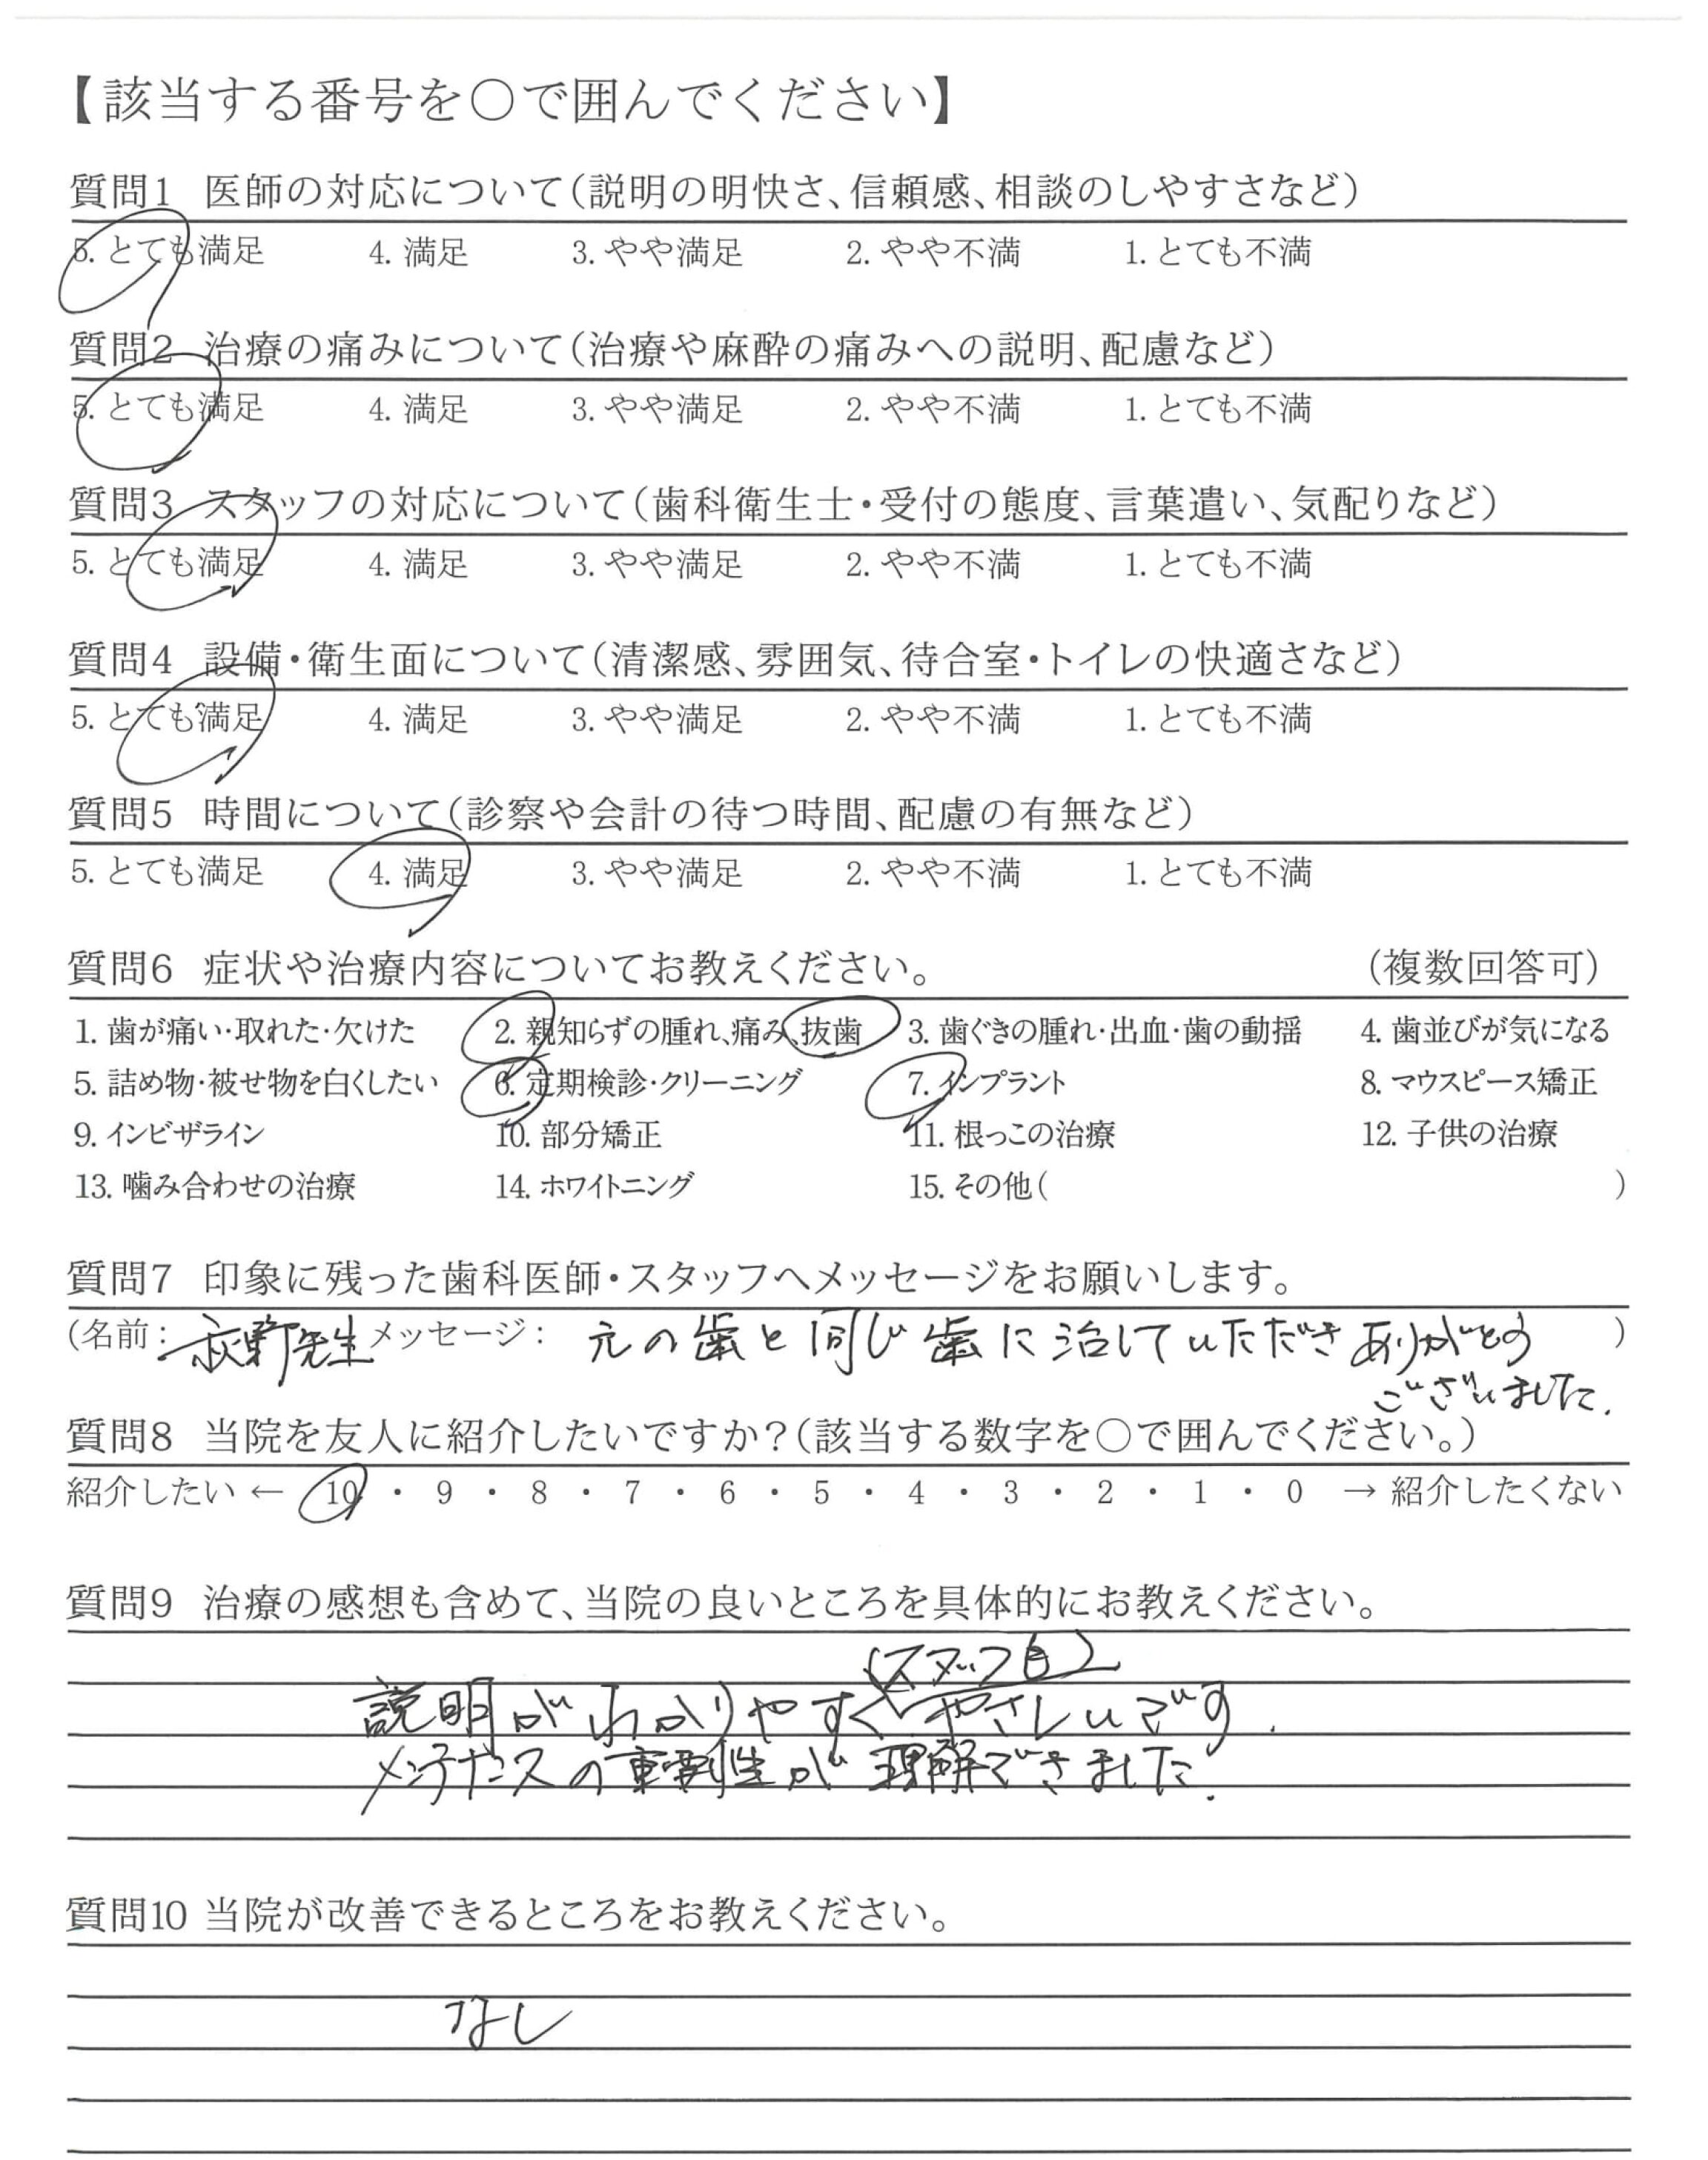 【該当する番号を○で囲んでください】
質問1 医師の対応について（説明の明快さ、信頼感、相談のしやすさなど）
5. とても満足 4. 満足 3. やや満足 2. やや不満 1. とても不満
質問2 治療の痛みについて（治療や麻酔の痛みへの説明、配慮など）
5. とても満足 4. 満足 3. やや満足 2. やや不満 1. とても不満
質問3 スタッフの対応について（歯科衛生士・受付の態度、言葉遣い、気配りなど）
5. とても満足 4. 満足 3. やや満足 2. やや不満 1. とても不満
質問4 設備・衛生面について（清潔感、雰囲気、待合室・トイレの快適さなど）
5. とても満足 4. 満足 3. やや満足 2. やや不満 1. とても不満
質問5 時間について（診察や会計の待つ時間、配慮の有無など）
5. とても満足 4. 満足 3. やや満足 2. やや不満 1. とても不満
質問6 症状や治療内容についてお教えください。 （複数回答可）
1. 歯が痛い・取れた・欠けた 2. 親知らずの腫れ、痛み、抜歯 3. 歯ぐきの腫れ・出血・歯の動揺 4. 歯並びが気になる
5. 詰め物・被せ物を白くしたい 6. 定期検診・クリーニング 7. インプラント 8. マウスピース矯正
9. インビザライン 10. 部分矯正 11. 根っこの治療 12. 子供の治療
13. 噛み合わせの治療 14. ホワイトニング 15. その他（ ）
質問7 印象に残った歯科医師・スタッフへメッセージをお願いします。
（名前： 先生 メッセージ： 元の歯と同じ歯に治していただきありがとう ）
ございました.
質問8 当院を友人に紹介したいですか？（該当する数字を○で囲んでください。）
紹介したい ← 10 ・ 9 ・ 8 ・ 7 ・ 6 ・ 5 ・ 4 ・ 3 ・ 2 ・ 1 ・ 0 → 紹介したくない
質問9 治療の感想も含めて、当院の良いところを具体的にお教えください。
（スタッフも）
説明がわかりやすくやさしいです.
メンテナンスの重要性が理解できました.
質問10 当院が改善できるところをお教えください。
なし